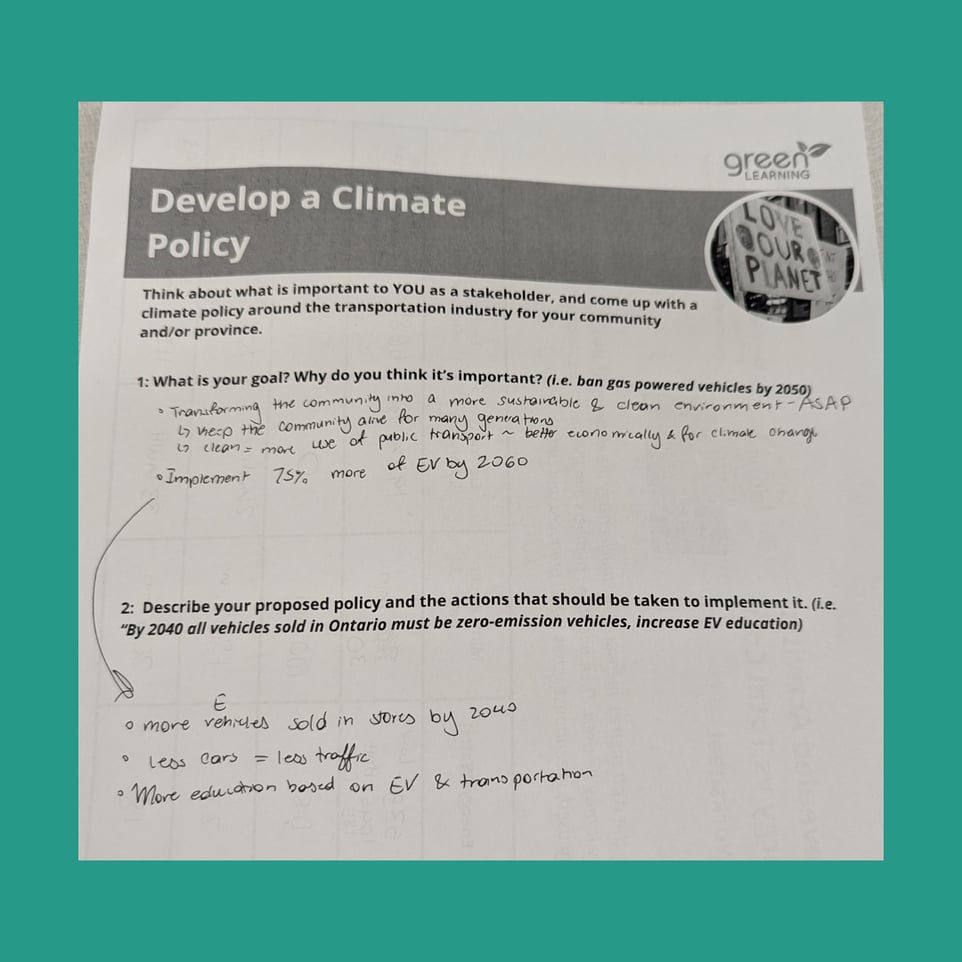 green
LEARNING
Develop a Climate
Policy
LOVE
OUR
PLANET
Think about what is important to YOU as a stakeholder, and come up with a
climate policy around the transportation industry for your community
and/or province.
1: What is your goal? Why do you think it's important? (i.e. ban gas powered vehicles by 2050)
◦ Transforming the community into a more sustainable & clean environment - ASAP
↳ keep the community alive for many generations
↳ clean = more use of public transport ~ better economically & for climate change
◦ Implement 75% more of EV by 2060
2: Describe your proposed policy and the actions that should be taken to implement it. (i.e.
"By 2040 all vehicles sold in Ontario must be zero-emission vehicles, increase EV education)
E
◦ more vehicles sold in stores by 2040
◦ Less cars = less traffic
◦ More education based on EV & transportation